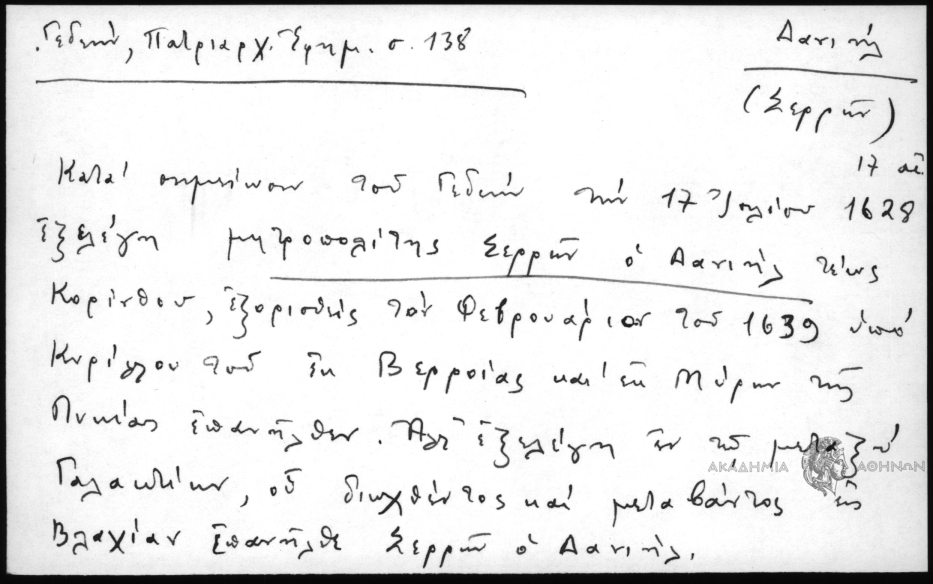 Γεδεών, Πατριαρχ. Ἐφημ. σ. 138
Δανιήλ
(Σερρῶν)
17 αἰ.
Κατά σημείωσιν τοῦ Γεδεών τήν 17 Ἰουλίου 1628
ἐξελέγη μητροπολίτης Σερρῶν ὁ Δανιήλ τέως
Κορίνθου, ἐξορισθείς τόν Φεβρουάριον τοῦ 1639 ὑπό
Κυρίλλου τοῦ ἐκ Βερροίας καί ἐκ Μύρων τῆς
Λυκίας ἐπανῆλθεν. Ἀλλ' ἐξελέγη ἐν τῷ μεταξύ
Γαλακτίων, οὗ διωχθέντος καί μεταβάντος εἰς
Βλαχίαν ἐπανῆλθε Σερρῶν ὁ Δανιήλ.
ΑΚΑΔΗΜΙΑ ΑΘΗΝΩΝ